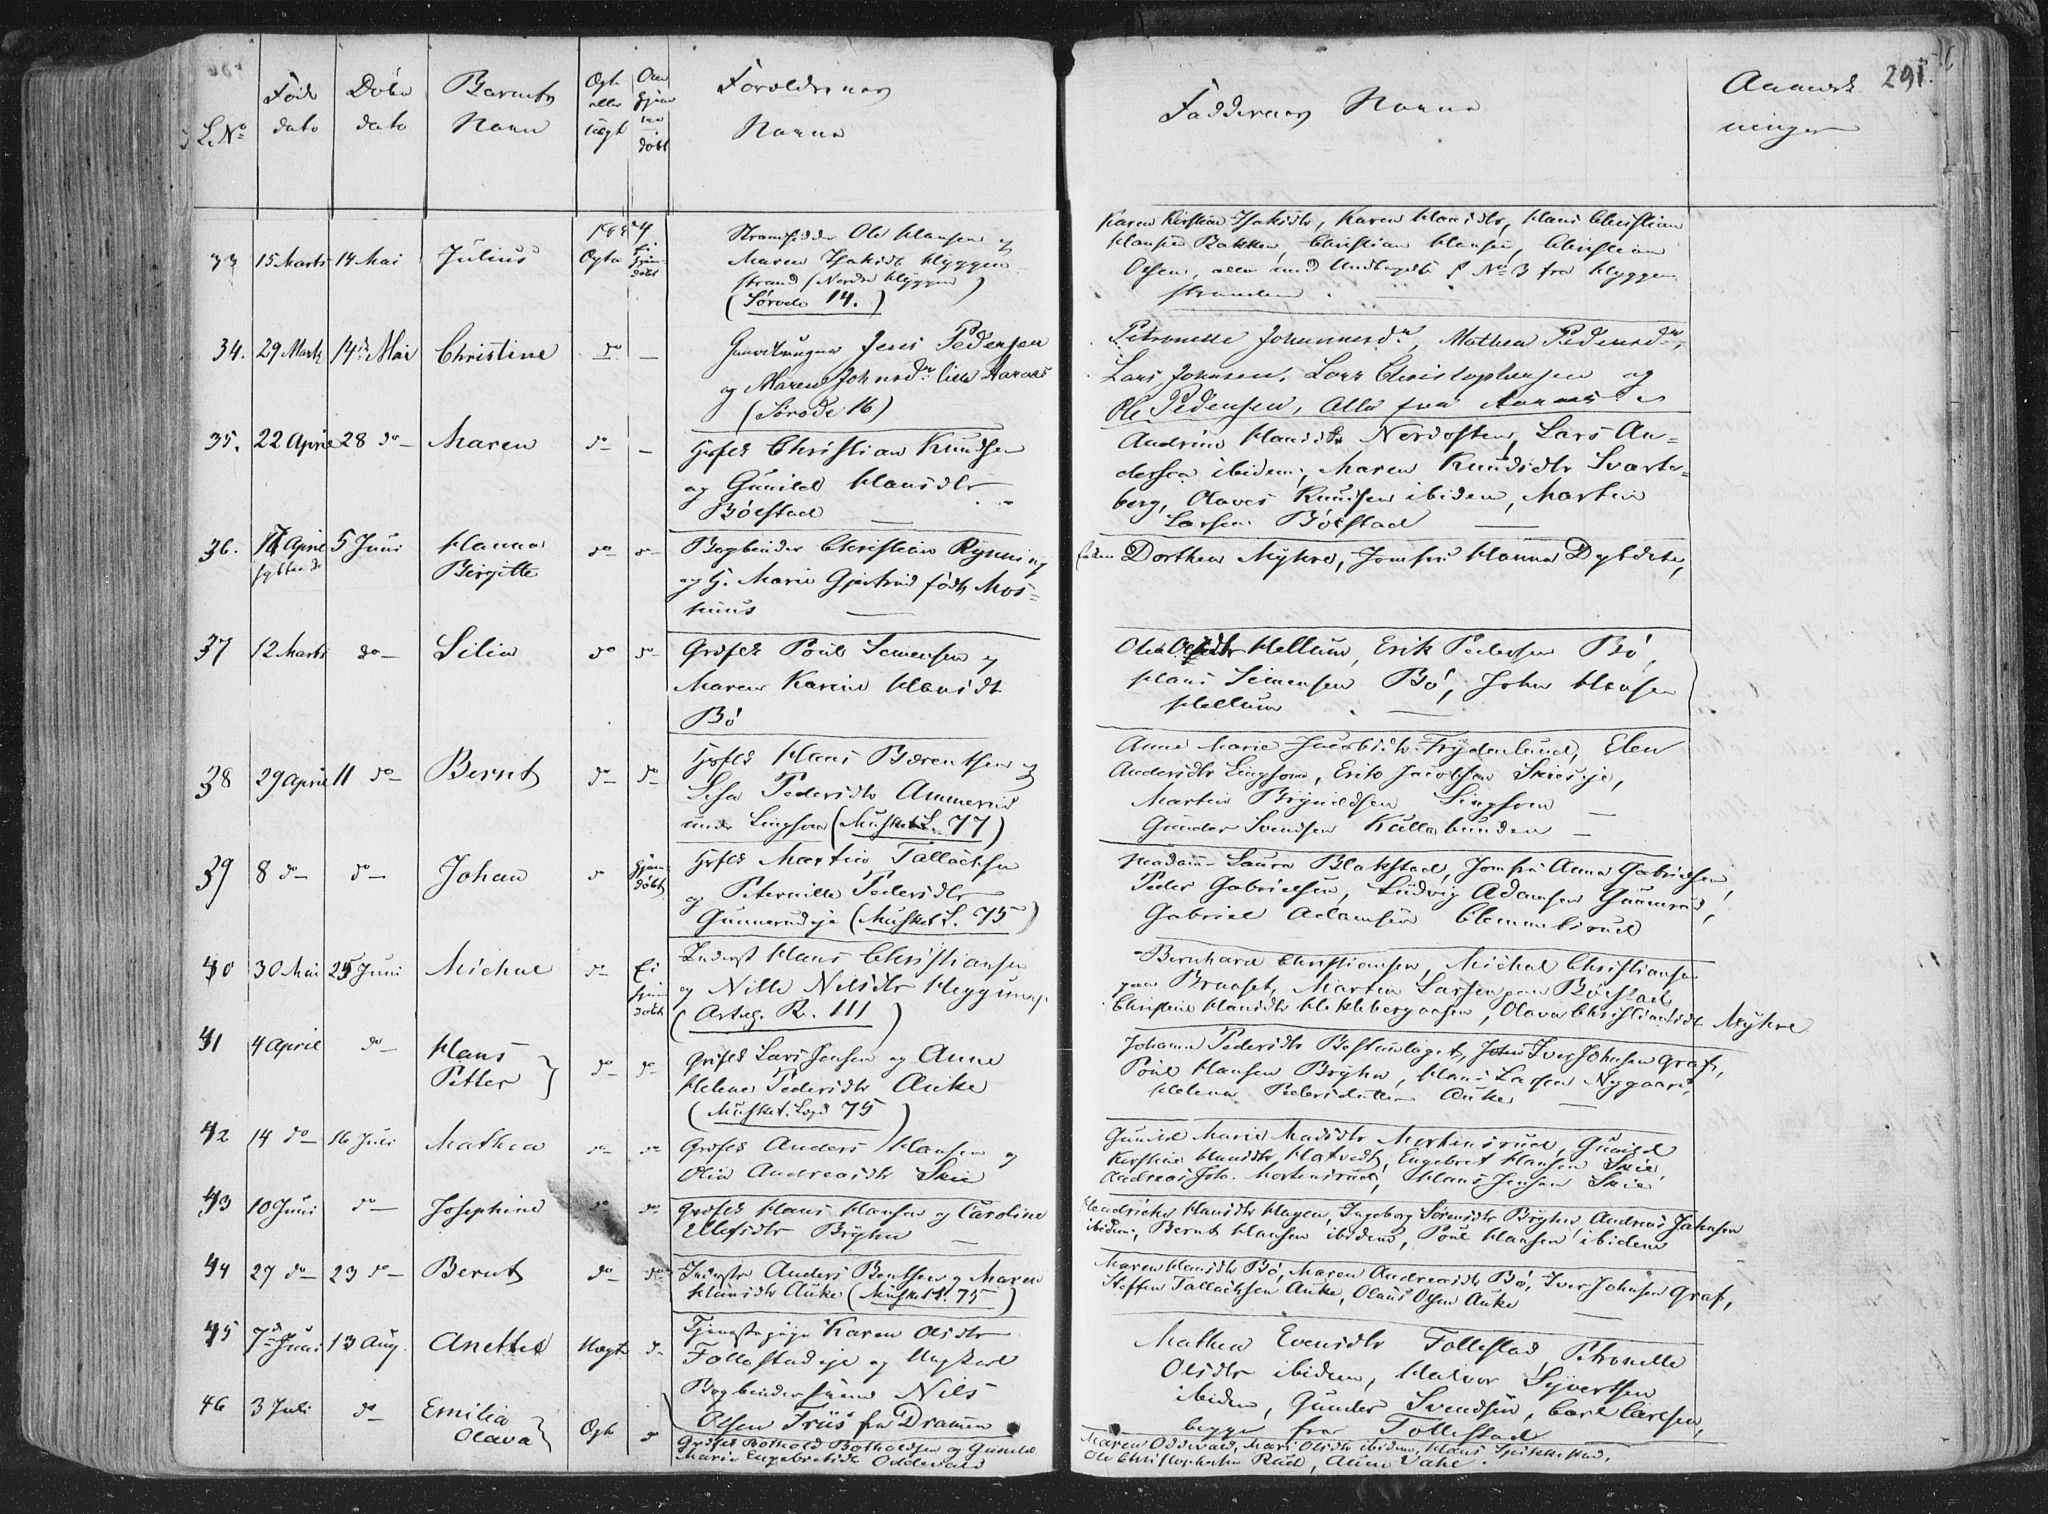 L. No
Føde dato
Døbe dato
Barnets Navn
Ægte eller Uægt
Om hjemme døbt
Forældrenes Navne
Faddernes Navne
Anmærkninger
291.
1854
33 15 Marts 14 Mai Julius Ægte Ei hjemdøbt
Strandsidder Ole Hansen og
Maren Isaksdtr Hyggen
strand (Nordre Hyggen)
(Sørode 14.)
Karen Kirstine Isaksdtr, Karen Hansdtr, Hans Christian
Hansen Bakken, Christian Hansen, Christian
Olsen, alle med Undtagelse f No 3 fra Hyggen
stranden.
34. 29 Marts 14de Mai Christine do —
Jens Pedersen
og Maren Johnsdr. lille Aaraas
(Sørode 16)
Petronelle Johannesdr, Mathea Pedersdr,
Lars Johnsen, Lars Christophersen og
Ole Pedersen, Alle fra Aaraas
35. 22 April 28 do Maren do —
Grdfdk Christian Knudsen
og Gunild Hansdtr
Bölstad
Andrine Hansdtr Nordosten, Lars An=
dersen ibidem, Maren Knudsdtr Svarte=
berg, Olaves Knudsen ibidem, Martin
Larsen Bölstad
36. April 5 Juni Hanna Birgitte do do
Bogbinder Christian Rynning
og H. Marie Gjertrud født Mos=
huus
Dorthea Myhre, Jomfru Hanna Dyldate,
37 12 Marts do Silia do do
Grdfdk Poul Simensen og
Maren Karine Hansdtr
Bö
Olea Olsdtr Hellum, Erik Pedersen Bö,
Hans Simensen Bö, John Hansen
Hellum
38 29 April 11 do Bernt do do
Hans Bærentsen og
Lisa Pedersdtr Ammerud
under Lingsom (Musket L. 77)
Anne Marie Jacobsdtr Frydenlund, Elen
Andersdtr Lingsom, Erik Jacobsen Skiseje,
Martin Brynildsen Lingsom
Gunder Svendsen Kullebunden
39 8 do do Johan do hjemdøbt
Martin Tallachsen
og Peternille Pedersdtr
Gunnerudeje (Musket L. 75)
Madam Laura Blakstad, Jomfru Anna Gabrielsen,
Peder Gabrielsen, Ludvig Adamsen Gunnerud,
Gabriel Adamsen Clemmetsrud
40 30 Mai 25 Juni Michal do Ei hjemdøbt
Inderst Hans Christiansen
og Nille Nilsdtr Heggum
(Artleg. R. 111)
Bernhard Christiansen, Michal Christiansen
paa Braaset, Martin Larsen paa Bölstad
Christine Hansdtr Hekleberg, Olava Christiansdt Myhre
41 4 April do Hans Petter do do
Grdfdk Lars Jensen og Anne
Helene Pedersdtr Auke
(Musket. Lægd 75)
Johanne Pedersdtr Bestumløget, Iver Johnsen Graf,
Poul Hansen Bryhn, Hans Larsen Nygaard,
Helena Pedersdatter Auke
42 14 do 16 Juli Mathea do do
Grdfdk Anders Hansen og
Olia Andreasdtr Skie
Gunild Marie Madsdtr Mortensrud, Gunild
Kirstine Hansdtr Hatvedt, Engebret Hansen Skie
Andreas Joh. Mortensrud, Hans Jensen Skie
43 10 Juni do Josephine do do
Grdfdk Hans Hansen og Caroline
Ellefsdtr Bryhn
Hendrikke Hansdtr Hagen, Ingeborg Sörensdtr Bryhn, Andreas Johnsen
ibidem, Bernt Hansen ibidem, Poul Hansen ibidem
44 27 do 23 do Bernt do do
Inderste Anders Bentsen og Maren
Hansdtr Auke (Musket L. 75)
Maren Hansdtr Bö, Maren Andreasdt Bö, Iver Johnsen Graf,
Steffen Tallachsen Auke, Olaus Olsen Auke
45 7de Juni 13 Aug. Anette Uægte do
Tjenestepige Karen Olsdtr
Follestadeje og Ungkarl
Bogbindersvend Nils
Olsen Friis fra Drammen
Mathea Evensdtr Follestad, Petronelle
Olsdtr ibidem, Halvor Syvertsen
ibidem, Gunder Svendsen, Carl Carlsen,
begge fra Follestad
46 3 Juli do Emilia Olava Ægt do
Grdfdk Bothold Botholdsen og Gunild
Marie Engebretsdt Oddevald
Maren Oddevald, Mari Olsdtr ibidem, Hans Spikkestad,
Ole Christophersen Rud, Anne Vahe.